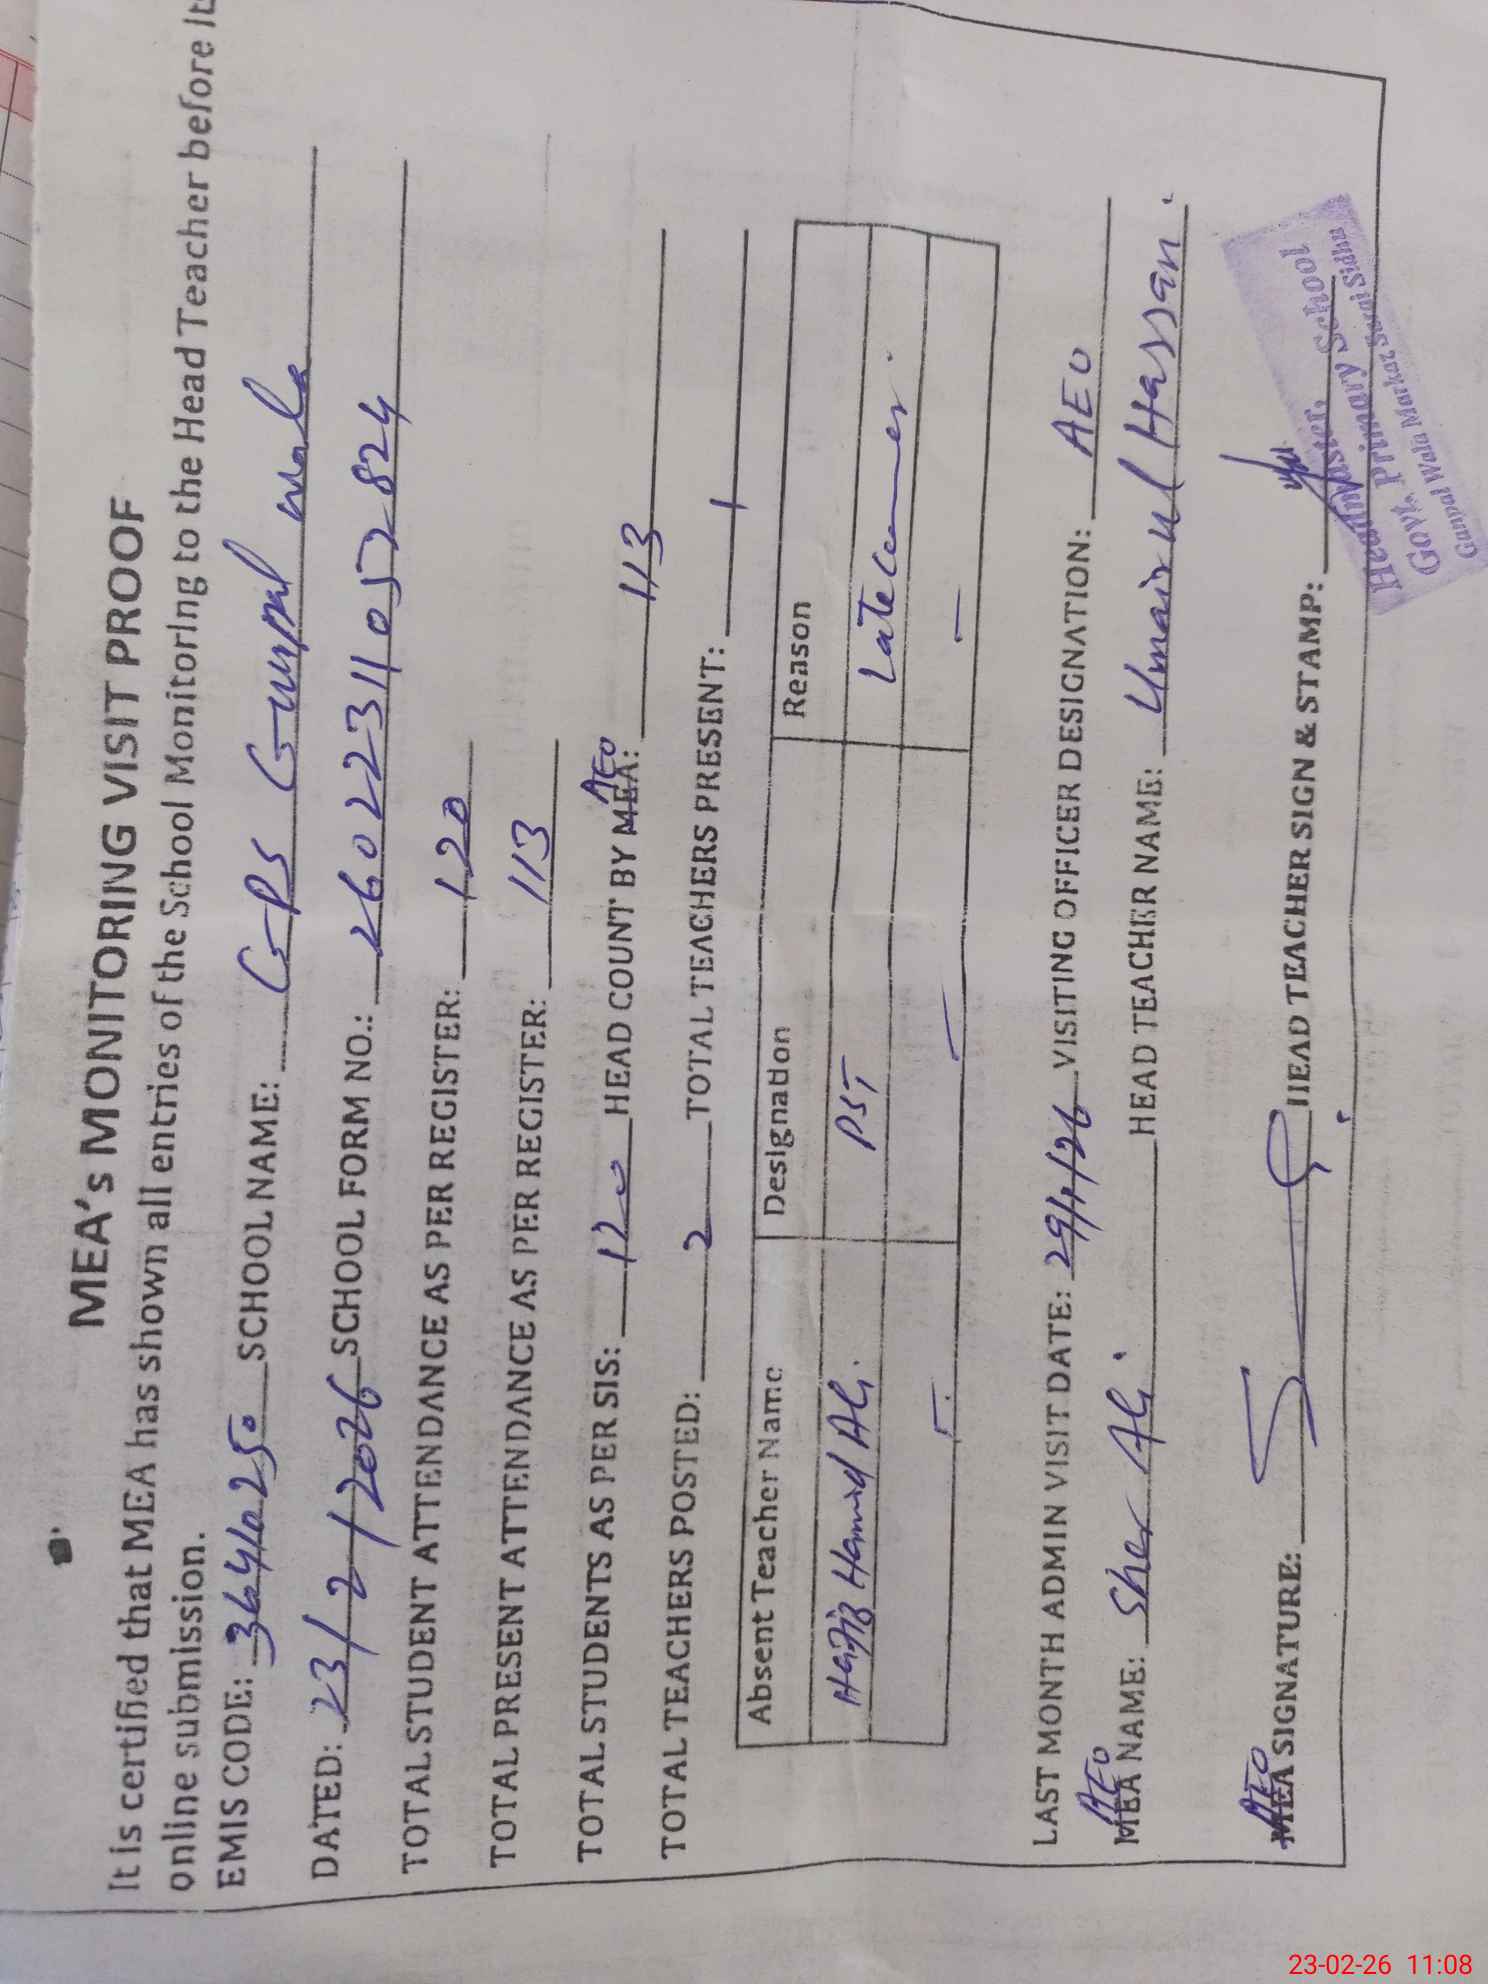 MEA's MONITORING VISIT PROOF
It is certified that MEA has shown all entries of the School Monitoring to the Head Teacher before its
online submission.
EMIS CODE: 36410250 SCHOOL NAME: GPS Gunpal wala
DATED: 23/2/2026 SCHOOL FORM NO.: 26022311052824
TOTAL STUDENT ATTENDANCE AS PER REGISTER: 120
TOTAL PRESENT ATTENDANCE AS PER REGISTER: 113
TOTAL STUDENTS AS PER SIS: 120 HEAD COUNT BY MEA: AEO 113
TOTAL TEACHERS POSTED: 2 TOTAL TEACHERS PRESENT: 1
Absent Teacher Name Designation Reason
Hafiz Hamid Ali. PST Latecomer.
LAST MONTH ADMIN VISIT DATE: 29/1/26 VISITING OFFICER DESIGNATION: AEO
AEO
MEA NAME: Sher Ali. HEAD TEACHER NAME: Umair ul Hassan.
AEO
MEA SIGNATURE: HEAD TEACHER SIGN & STAMP:
Headmaster,
Govt. Primary School
Gunpal Wala Markaz Sarai Sidhu
23-02-26 11:08